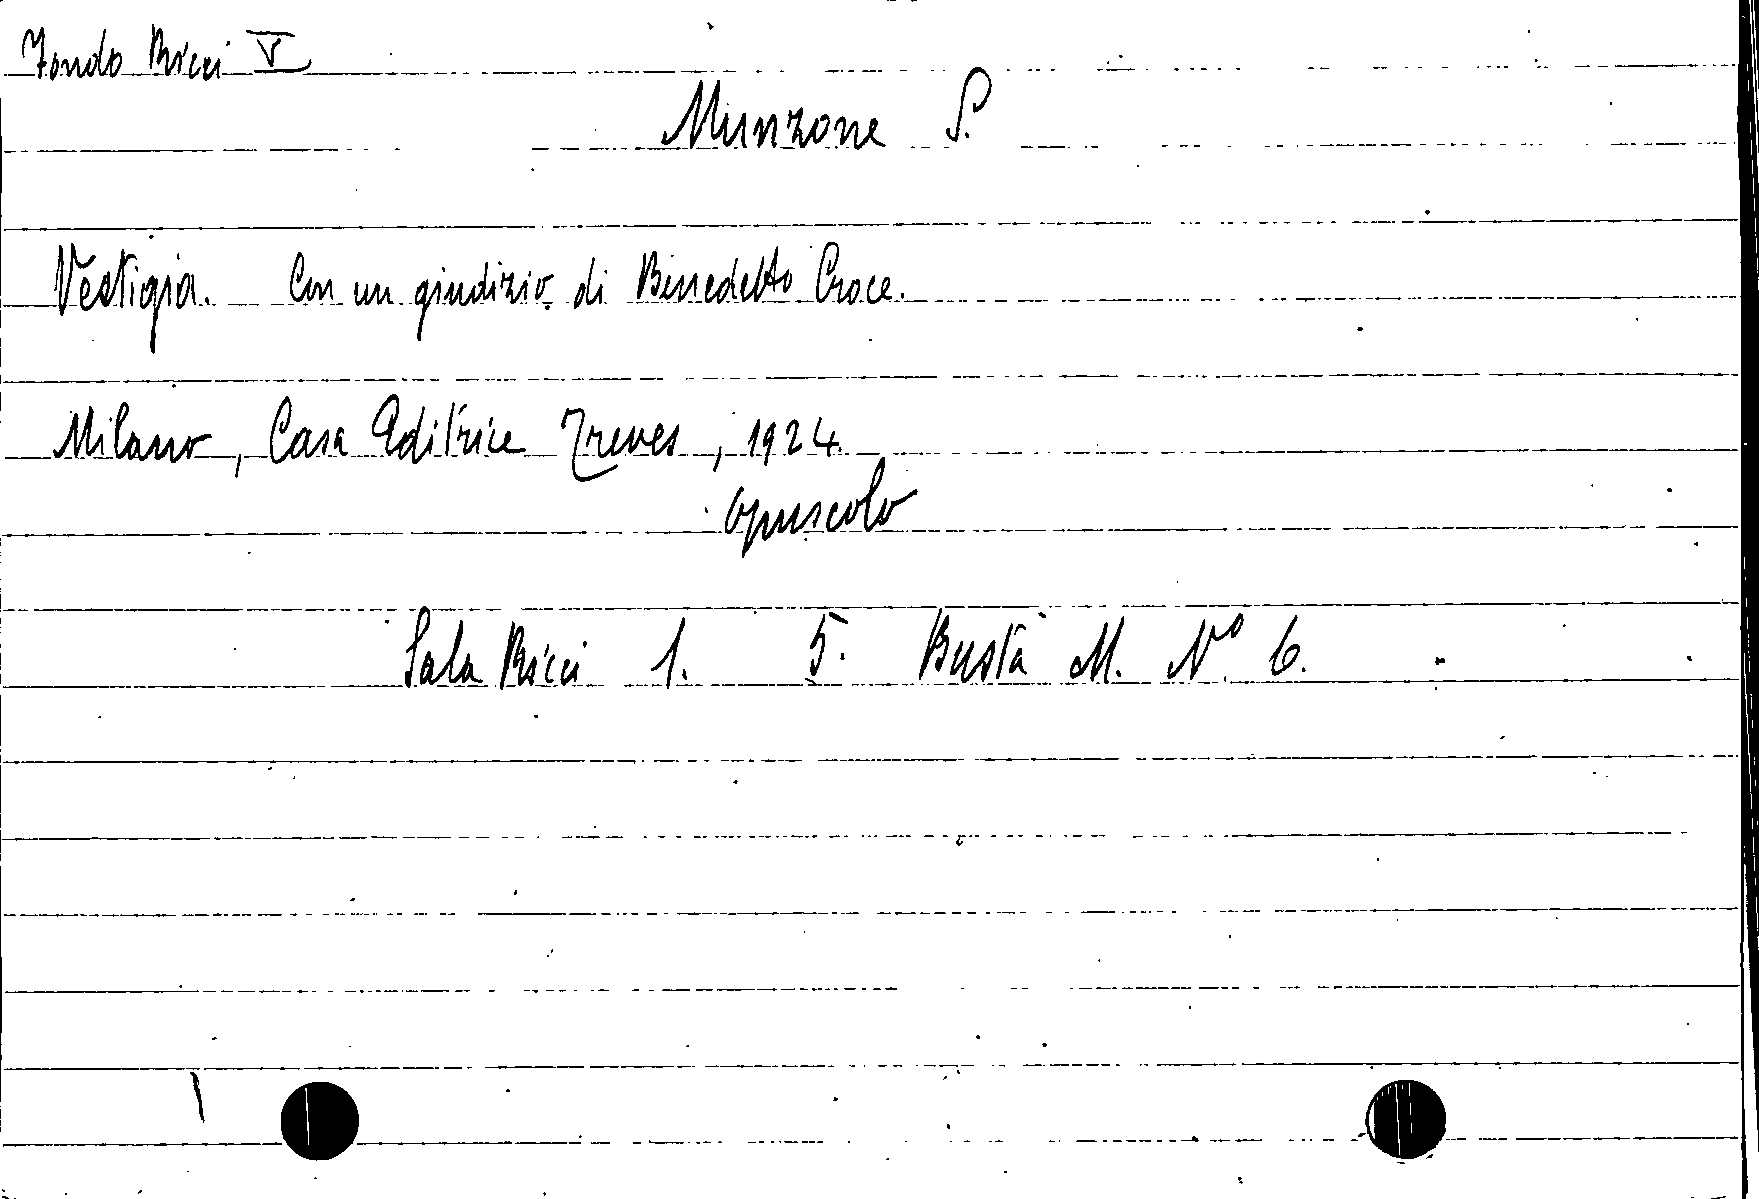 Fondo Ricci V
Munzone S.
Vestigia. Con un giudizio di Benedetto Croce.
Milano, Casa Editrice Treves, 1924.
opuscolo
Sala Ricci 1. 5. Busta M. N° 6.